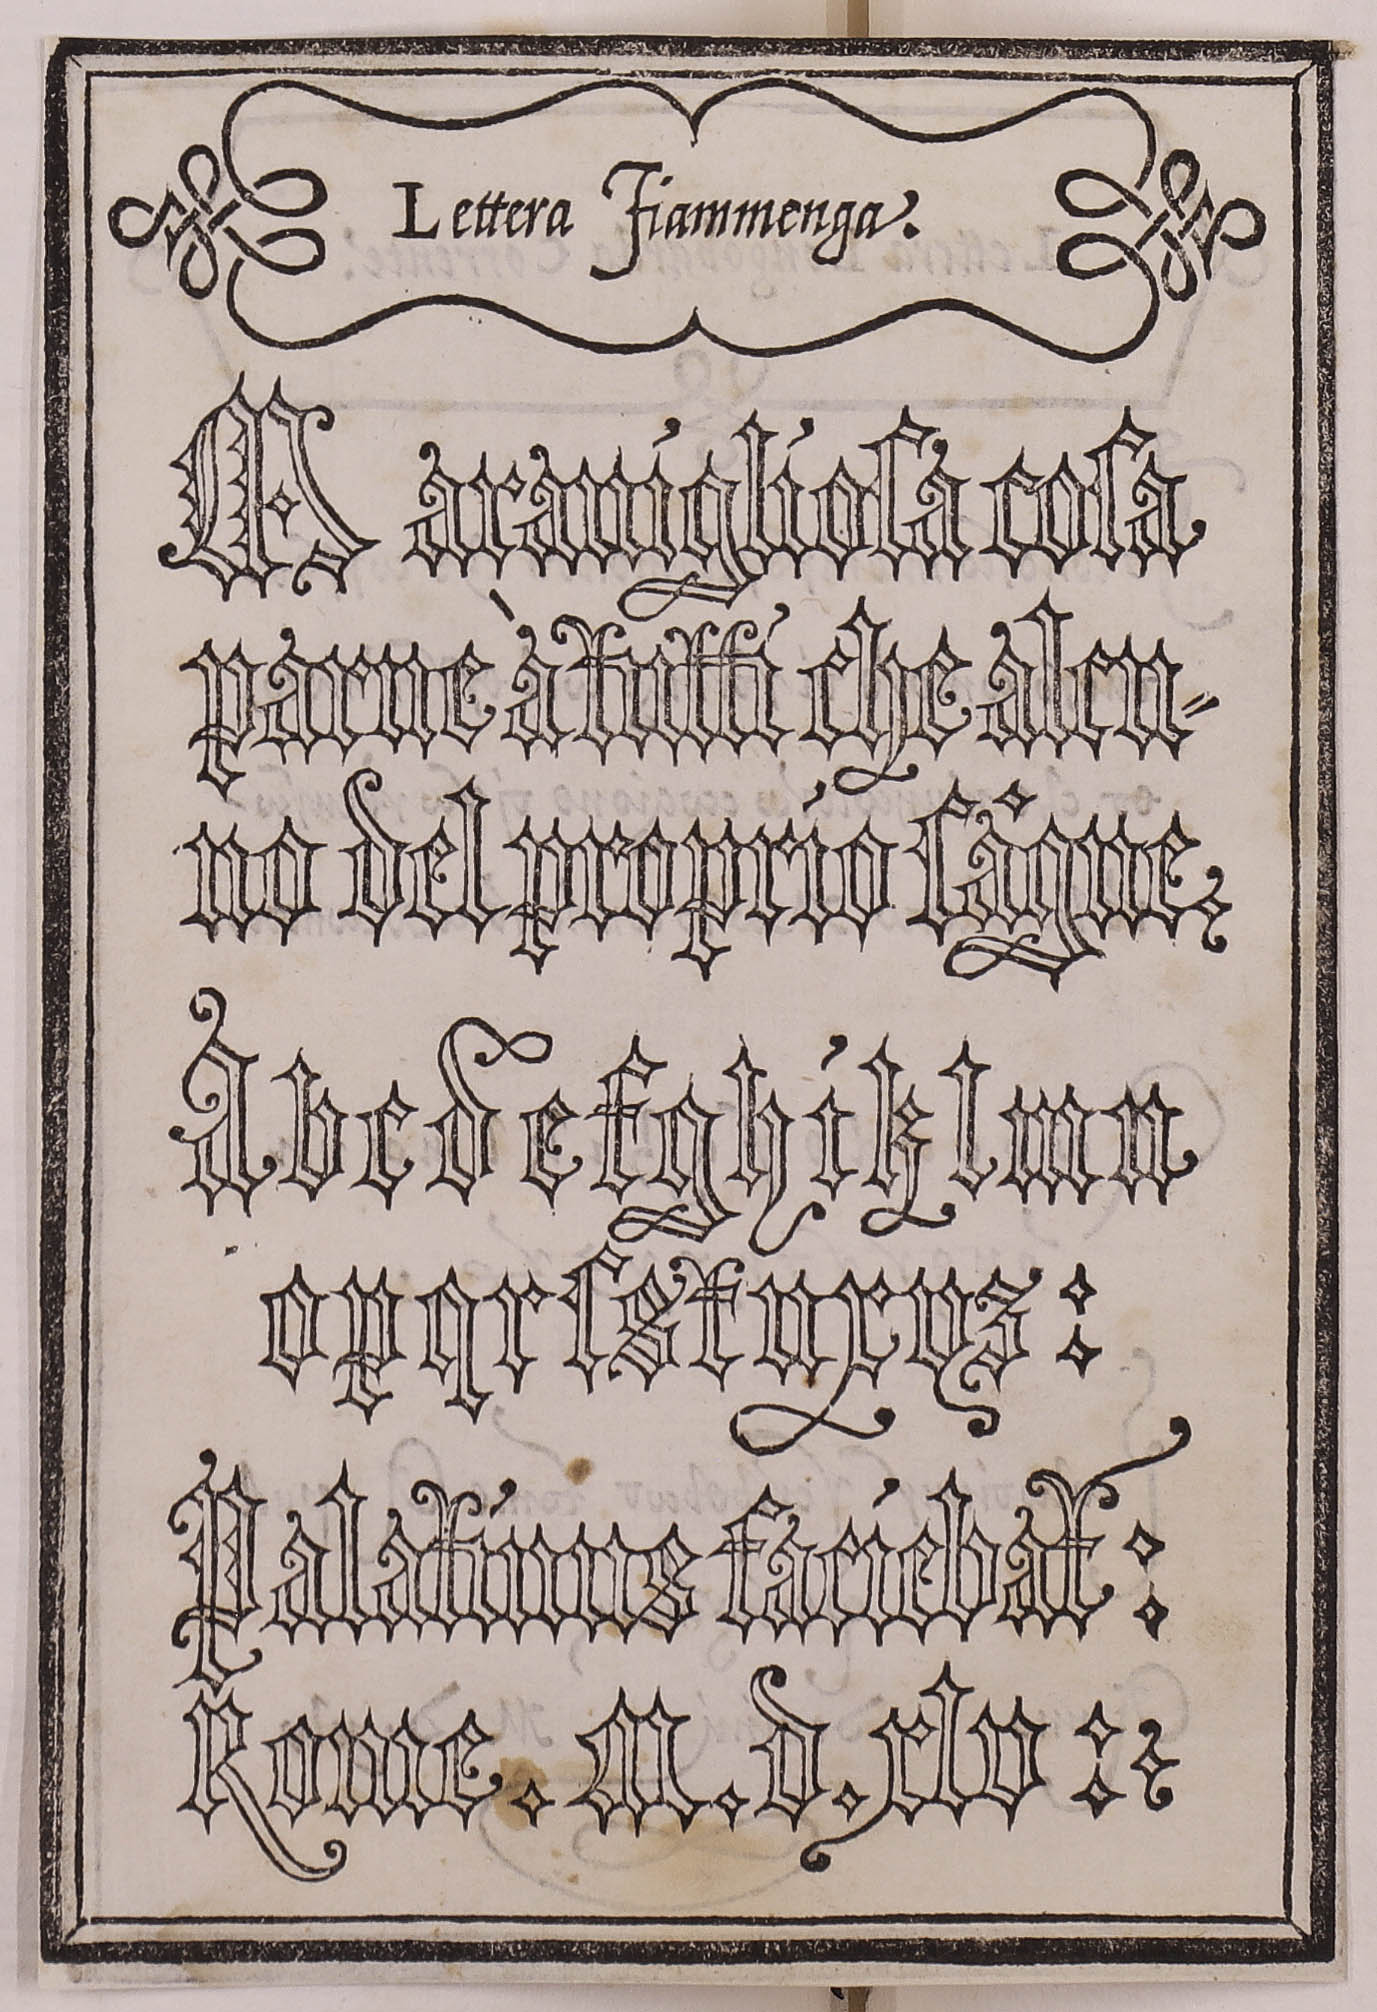 Lettera Fiammenga.
Marauigliosa cosa
parue à tutti che alcu-
no del proprio sägue,
Abcdefghiklmn
opqrsstuxyz:
Palatinus faciebat:
Rome. M. D. xlv: